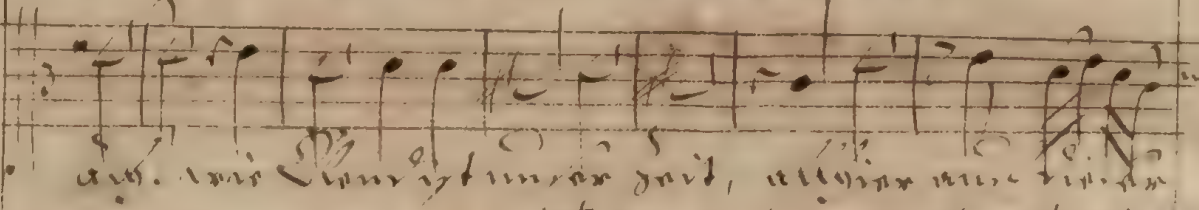 auß. wie klein ist unser Zeit, allhier auf dieser